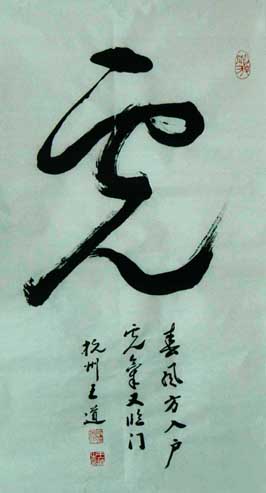 虎
春风方入户
虎氣又临门
杭州王道